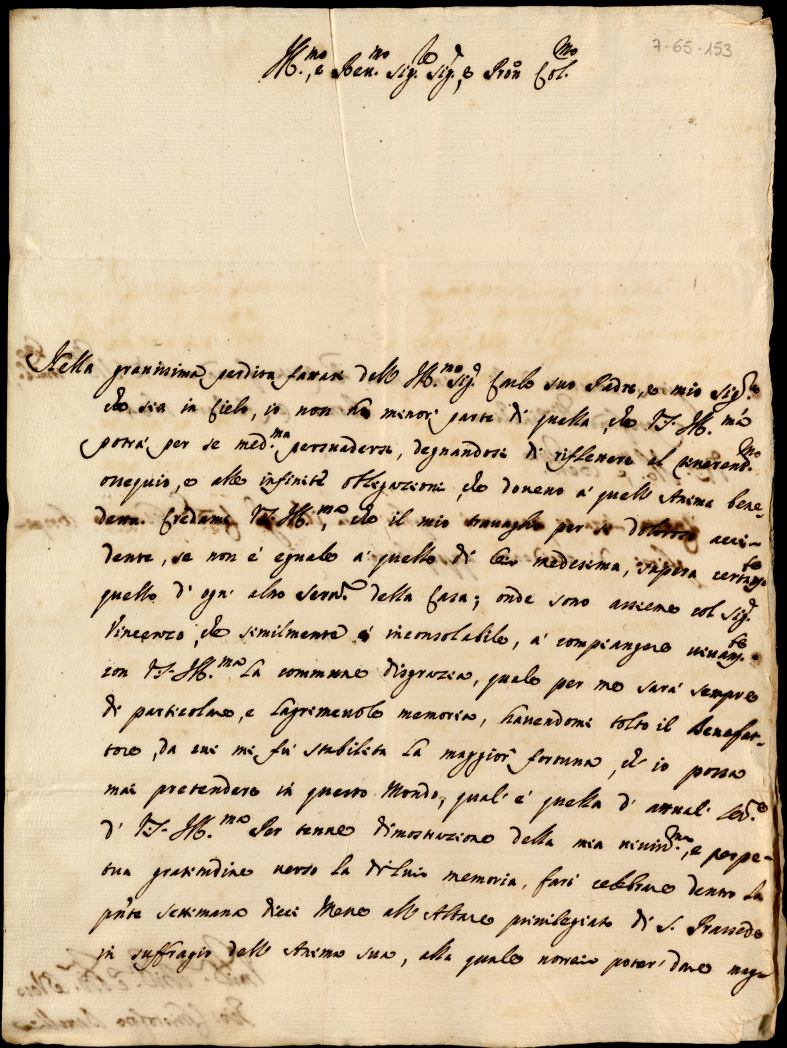 7-65-153
Ill.mo, e Ben.mo Sig.r Sig.r, e Pron Col.mo
Nella gravissima perdita fattasi dell' Ill.mo Sig.r Carlo suo Padre, e mio Sig.re
che sia in Cielo, io non hò minor parte di quella, che V.S. Ill.ma
potrà per se med.ma persuadersi, degnandosi di riflettere al reverend.mo
ossequio, e alle infinite obligazioni, che devevo à quell' Anima bene-
detta. Credami V.S. Ill.ma, che il mio travaglio per sì doloroso acci-
dente, se non è eguale à quello di Lei medesima, supera certam.te
quello d' ogn' altro Serv.re della Casa; onde sono assieme col Sig.r
Vincenzo, che similmente è inconsolabile, à compiangere vivam.te
con V.S. Ill.ma la commune disgrazia, quale per me sarà sempre
di particolare, e lagrimevole memoria, havendomi tolto il Benefat-
tore, da cui mi fù stabilita la maggior fortuna, ch' io possa
mai pretendere in questo Mondo, qual' è quella d' attual' Ser.e
d' V.S. Ill.ma Per tenue dimostrazione della mia vivid.ma, e perpe-
tua gratitudine verso la di lui memoria, farò celebrare dentro la
pnte settimana dieci Messe all' Altare privilegiato di S. Prassede
in suffragio dell' Anima sua, alla quale vorrei poter' dare mag-